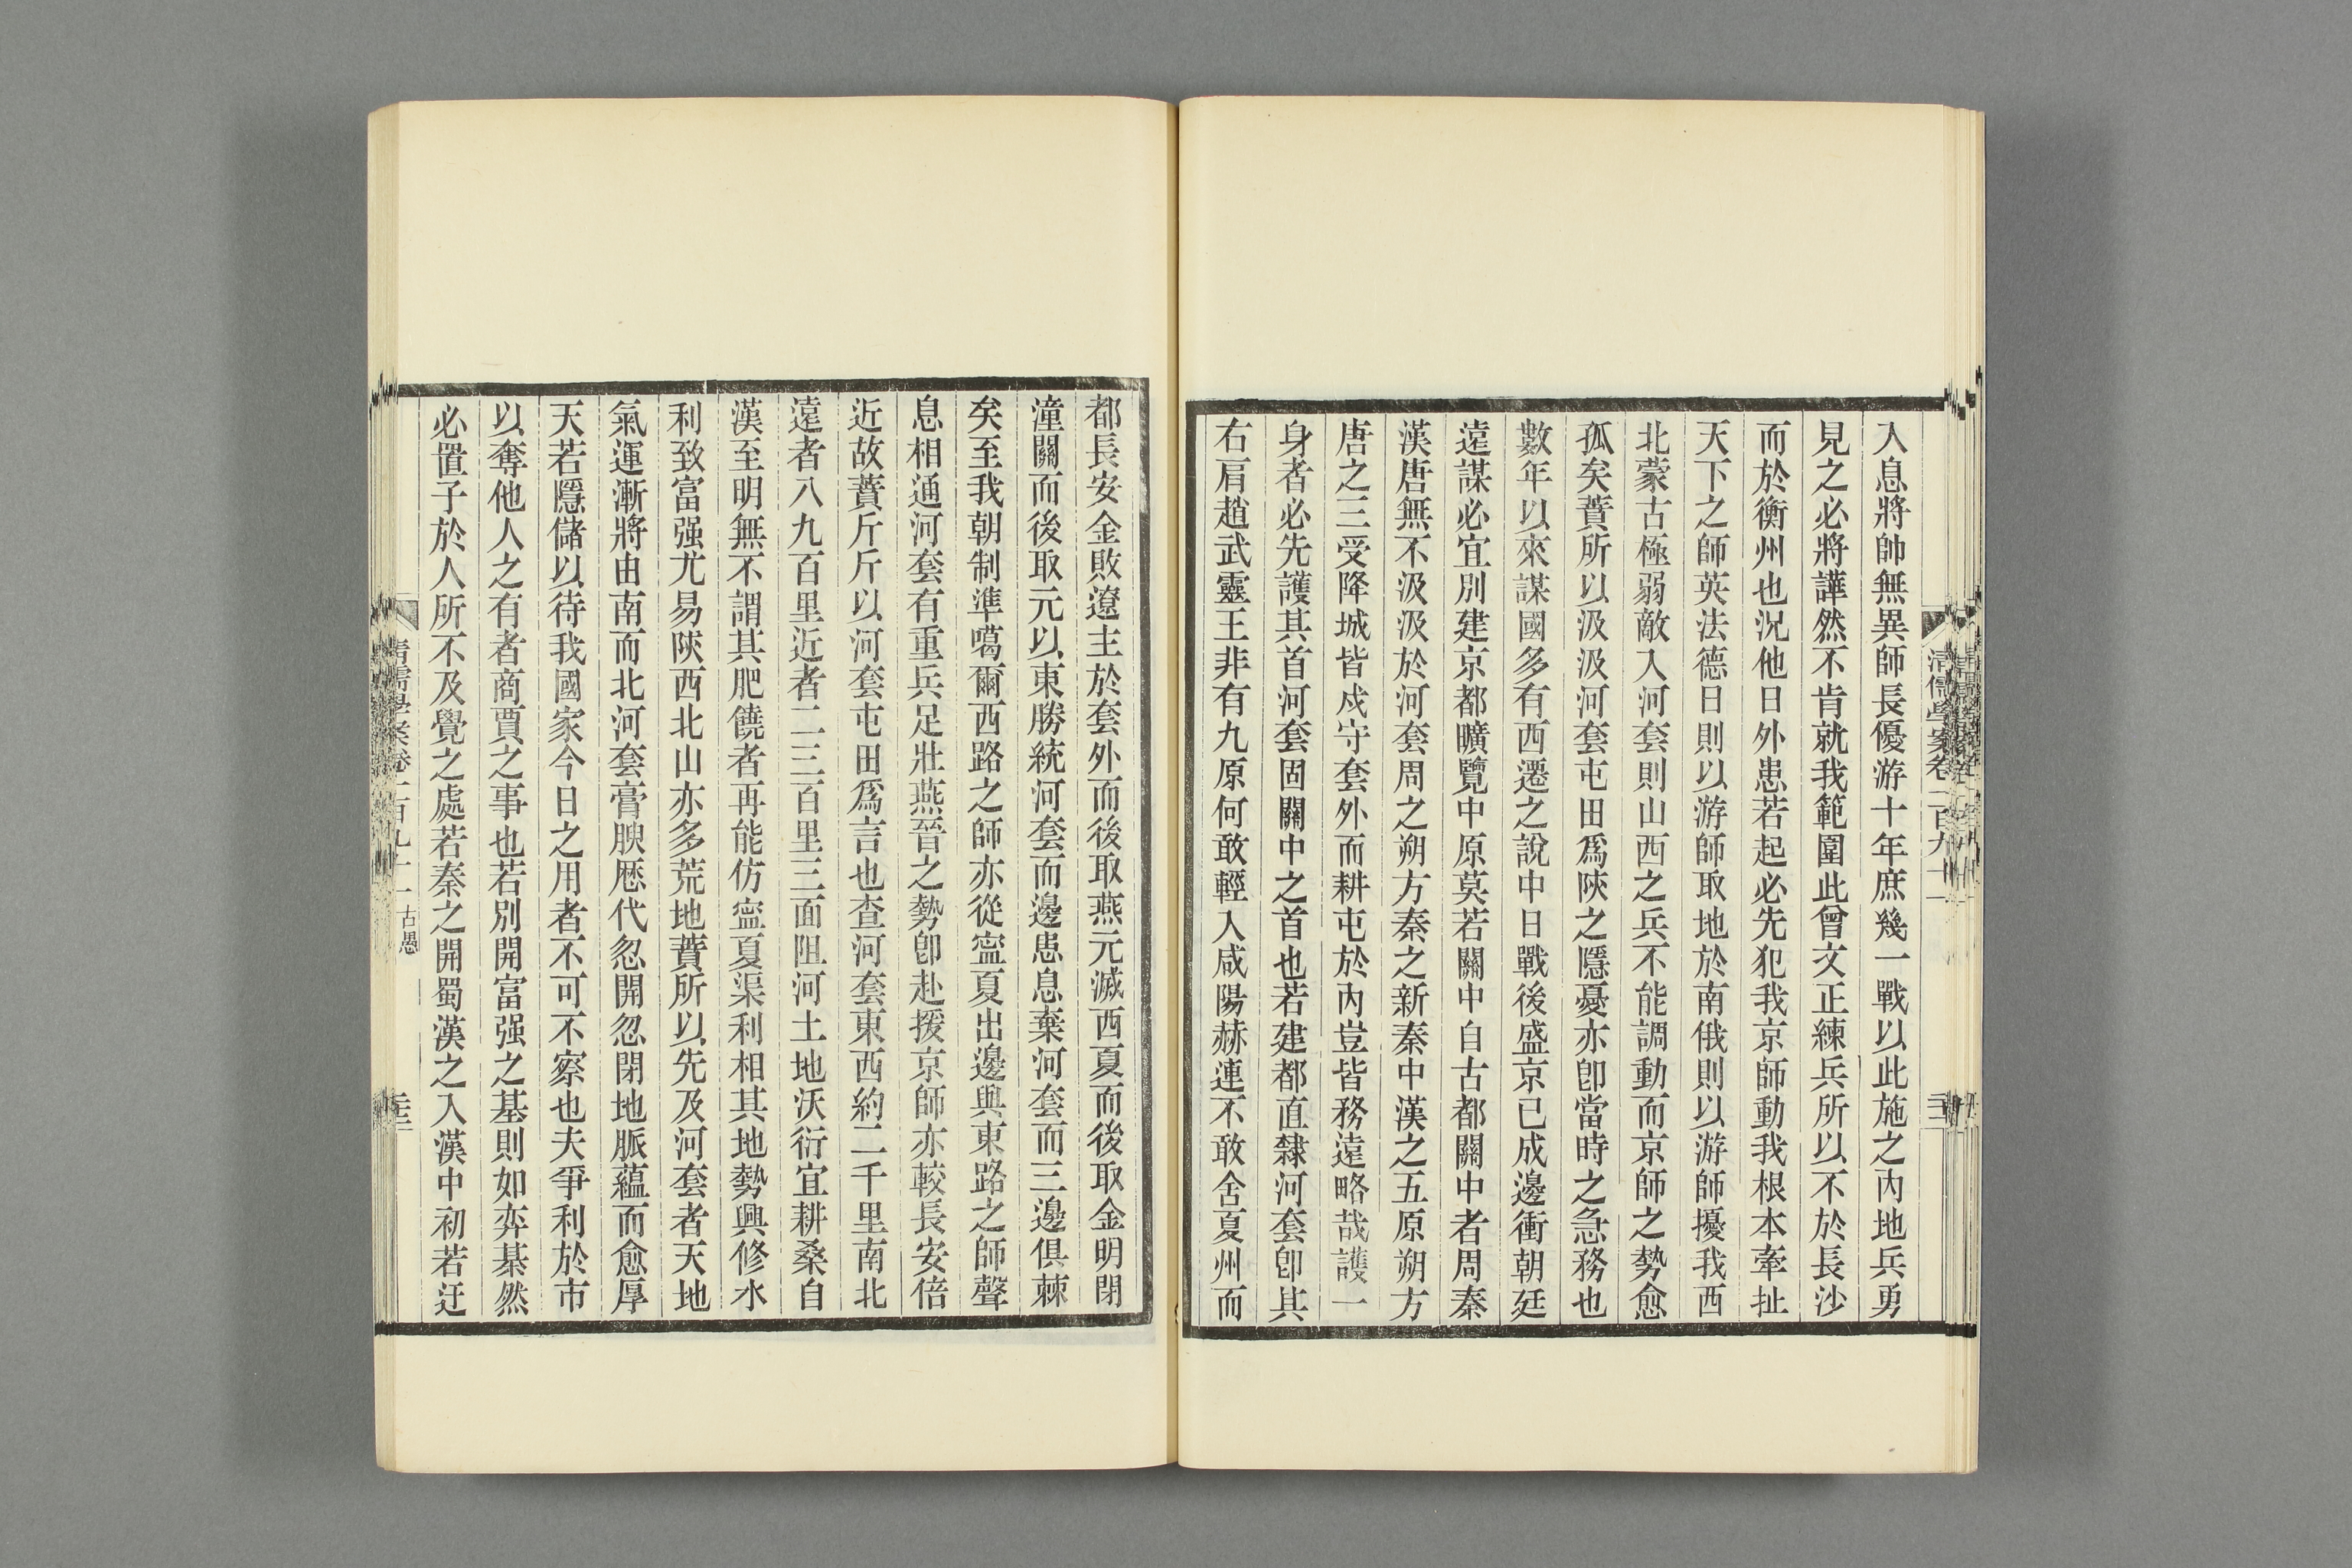 入息將帥無異師長優游十年庶幾一戰以此施之內地兵勇
見之必將譁然不肯就我範圍此曾文正練兵所以不於長沙
而於衡州也況他日外患若起必先犯我京師動我根本牽扯
天下之師英法德日則以游師取地於南俄則以游師擾我西
北蒙古極弱敵入河套則山西之兵不能調動而京師之勢愈
孤矣蕡所以汲汲河套屯田爲陝之隱憂亦卽當時之急務也
數年以來謀國多有西遷之說中日戰後盛京已成邊衝朝廷
遠謀必宜別建京都曠覽中原莫若關中自古都關中者周秦
漢唐無不汲汲於河套周之朔方秦之新秦中漢之五原朔方
唐之三受降城皆戍守套外而耕屯於內豈皆務遠略哉護一
身者必先護其首河套固關中之首也若建都直隸河套卽其
右肩趙武靈王非有九原何敢輕入咸陽赫連不敢舍夏州而
都長安金敗遼主於套外而後取燕元滅西夏而後取金明閉
潼關而後取元以東勝統河套而邊患息棄河套而三邊俱棘
矣至我朝制準噶爾西路之師亦從寍夏出邊與東路之師聲
息相通河套有重兵足壯燕晉之勢卽赴援京師亦較長安倍
近故蕡斤斤以河套屯田爲言也查河套東西約二千里南北
遠者八九百里近者二三百里三面阻河土地沃衍宜耕桑自
漢至明無不謂其肥饒者再能仿寍夏渠利相其地勢興修水
利致富强尤易陝西北山亦多荒地蕡所以先及河套者天地
氣運漸將由南而北河套膏腴歷代忽開忽閉地脈蘊而愈厚
天若隱儲以待我國家今日之用者不可不察也夫爭利於市
以奪他人之有者商賈之事也若別開富强之基則如弈棊然
必置子於人所不及覺之處若秦之開蜀漢之入漢中初若迂
清儒學案卷一百九十一 古愚